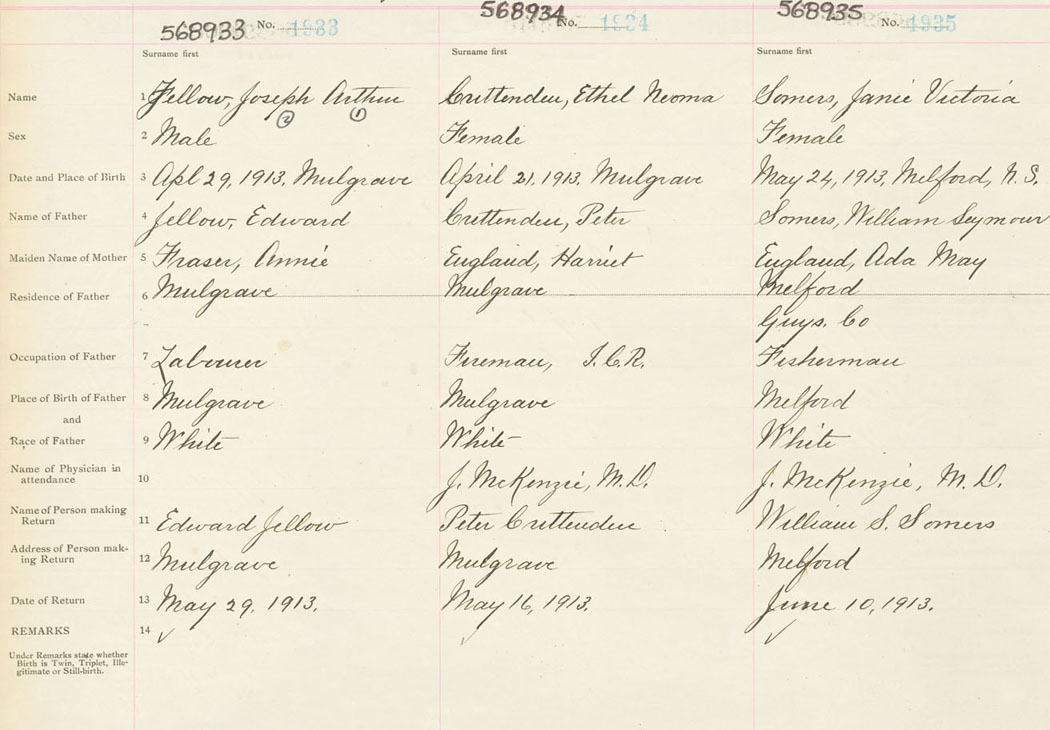 568933 No. 1933 568934 No. 1934 568935 No. 1935
Surname first Surname first Surname first
Name 1 Fellow, Joseph Arthur Crittenden, Ethel Neoma Somers, Janie Victoria
② ①
Sex 2 Male Female Female
Date and Place of Birth 3 Apl 29, 1913. Mulgrave April 21, 1913. Mulgrave May 24, 1913, Melford, N.S.
Name of Father 4 Fellow, Edward Crittenden, Peter Somers, William Seymour
Maiden Name of Mother 5 Fraser, Annie England, Harriet England, Ada May
Residence of Father 6 Mulgrave Mulgrave Melford
Guys. Co
Occupation of Father 7 Labourer Fireman, I.C.R. Fisherman
Place of Birth of Father 8 Mulgrave Mulgrave Melford
and
Race of Father 9 White White White
Name of Physician in
attendance 10 J. McKenzie, M.D. J. McKenzie, M.D.
Name of Person making
Return 11 Edward Fellow Peter Crittenden William S. Somers
Address of Person mak-
ing Return 12 Mulgrave Mulgrave Melford
Date of Return 13 May 29, 1913. May 16, 1913. June 10, 1913.
REMARKS 14 ✓ ✓ ✓
Under Remarks state whether
Birth is Twin, Triplet, Ille-
gitimate or Still-birth.